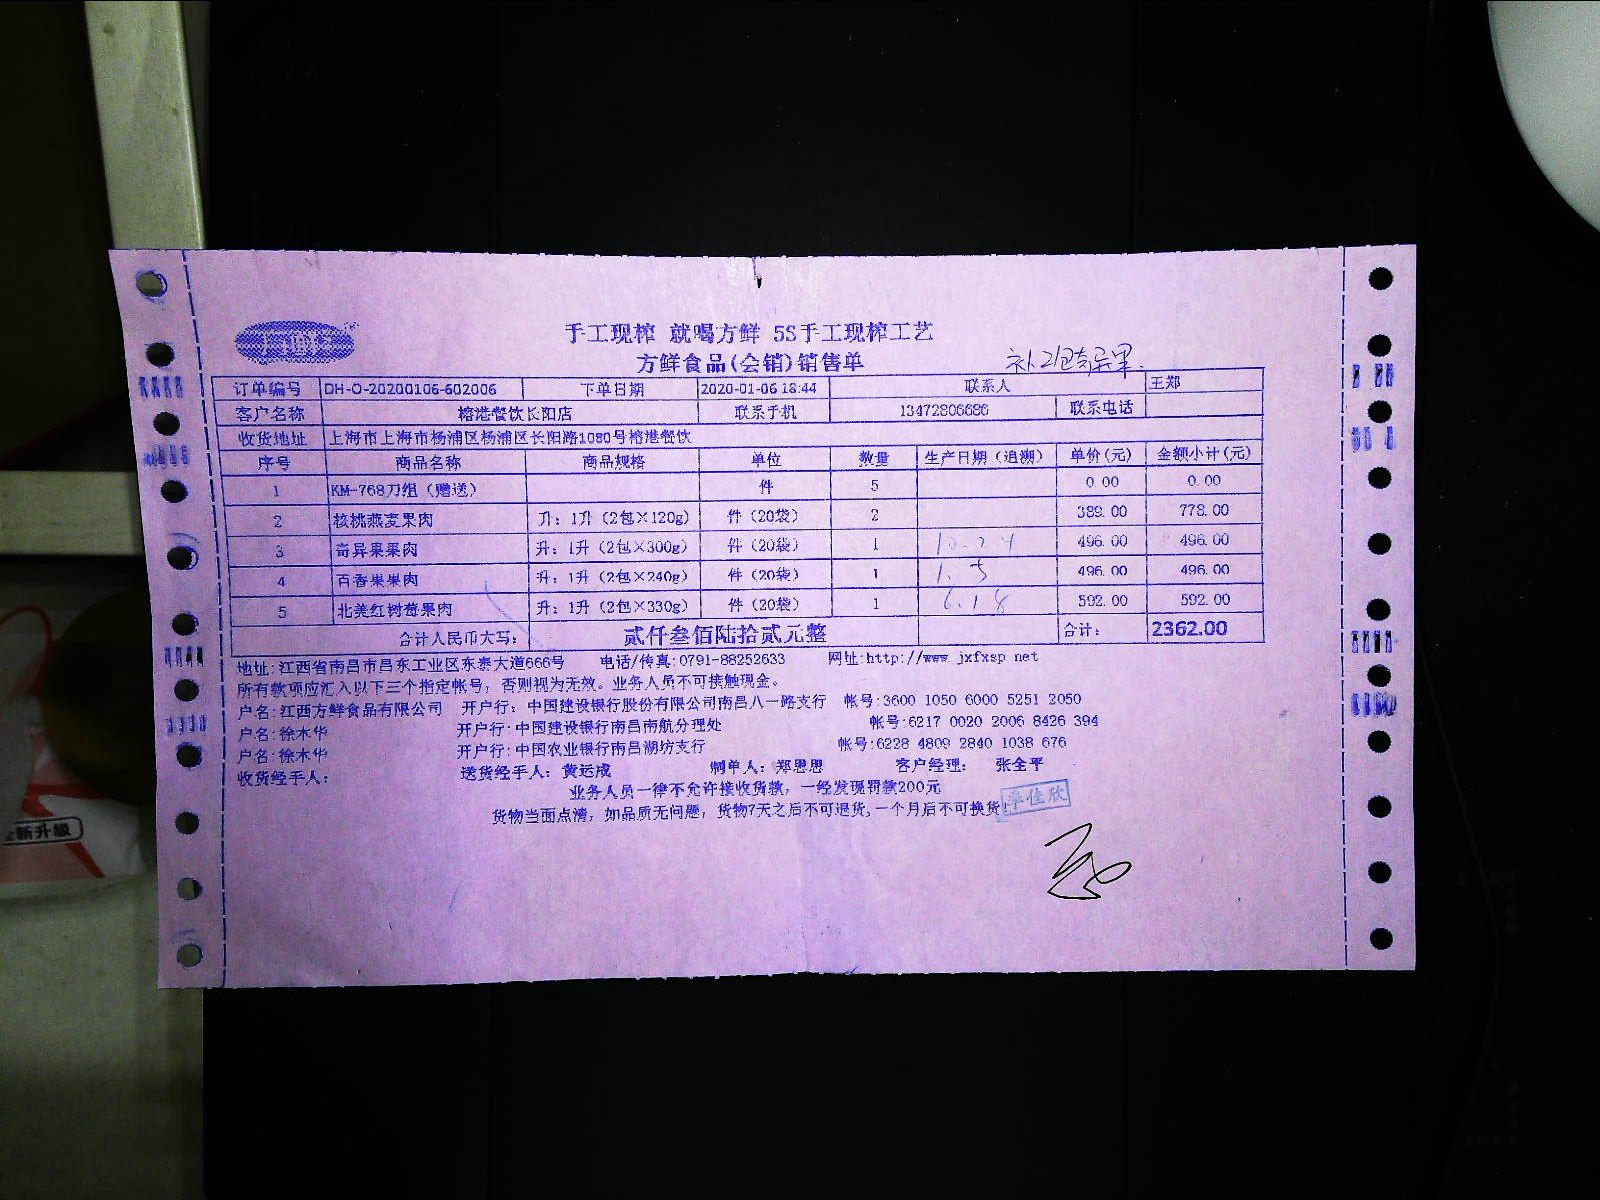 手工现榨 就喝方鲜 5S手工现榨工艺
方鲜食品(会销)销售单
补2包奇异果.
订单编号 DH-O-20200106-602006 下单日期 2020-01-06 18:44 联系人 王郑
客户名称 榕港餐饮长阳店 联系手机 13472806686 联系电话
收货地址 上海市上海市杨浦区杨浦区长阳路1080号榕港餐饮
序号 商品名称 商品规格 单位 数量 生产日期（追溯） 单价(元) 金额小计(元)
1 KM-768刀组（赠送） 件 5 0.00 0.00
2 核桃燕麦果肉 升：1升（2包×120g） 件（20袋） 2 389.00 778.00
3 奇异果果肉 升：1升（2包×300g） 件（20袋） 1 10.24 496.00 496.00
4 百香果果肉 升：1升（2包×240g） 件（20袋） 1 1.5 496.00 496.00
5 北美红树莓果肉 升：1升（2包×330g） 件（20袋） 1 6.18 592.00 592.00
合计人民币大写： 贰仟叁佰陆拾贰元整 合计： 2362.00
地址:江西省南昌市昌东工业区东泰大道666号 电话/传真:0791-88252633 网址:http://www.jxfxsp.net
所有款项应汇入以下三个指定帐号，否则视为无效。业务人员不可接触现金。
户名:江西方鲜食品有限公司 开户行：中国建设银行股份有限公司南昌八一路支行 帐号:3600 1050 6000 5251 2050
户名:徐木华 开户行:中国建设银行南昌南航分理处 帐号:6217 0020 2006 8426 394
户名:徐木华 开户行:中国农业银行南昌湖坊支行 帐号:6228 4809 2840 1038 676
收货经手人： 送货经手人：黄运成 制单人：郑恩恩 客户经理： 张全平
业务人员一律不允许接收货款，一经发现罚款200元
货物当面点清，如品质无问题，货物7天之后不可退货,一个月后不可换货!
李佳欣
新升级